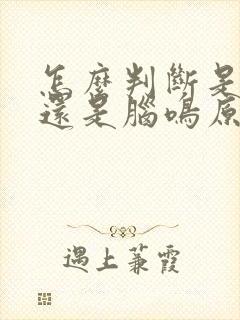 怎麼判斷是
還是腦鳴原
遇上蒹霞